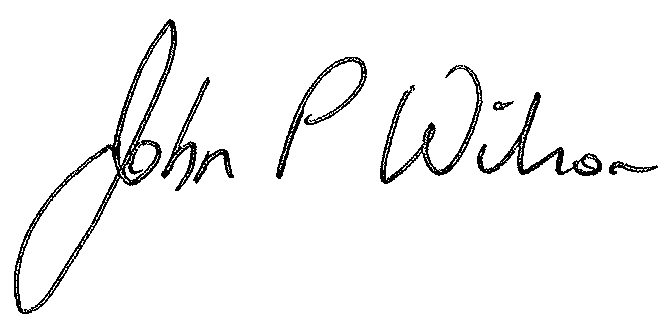 John P Wilson